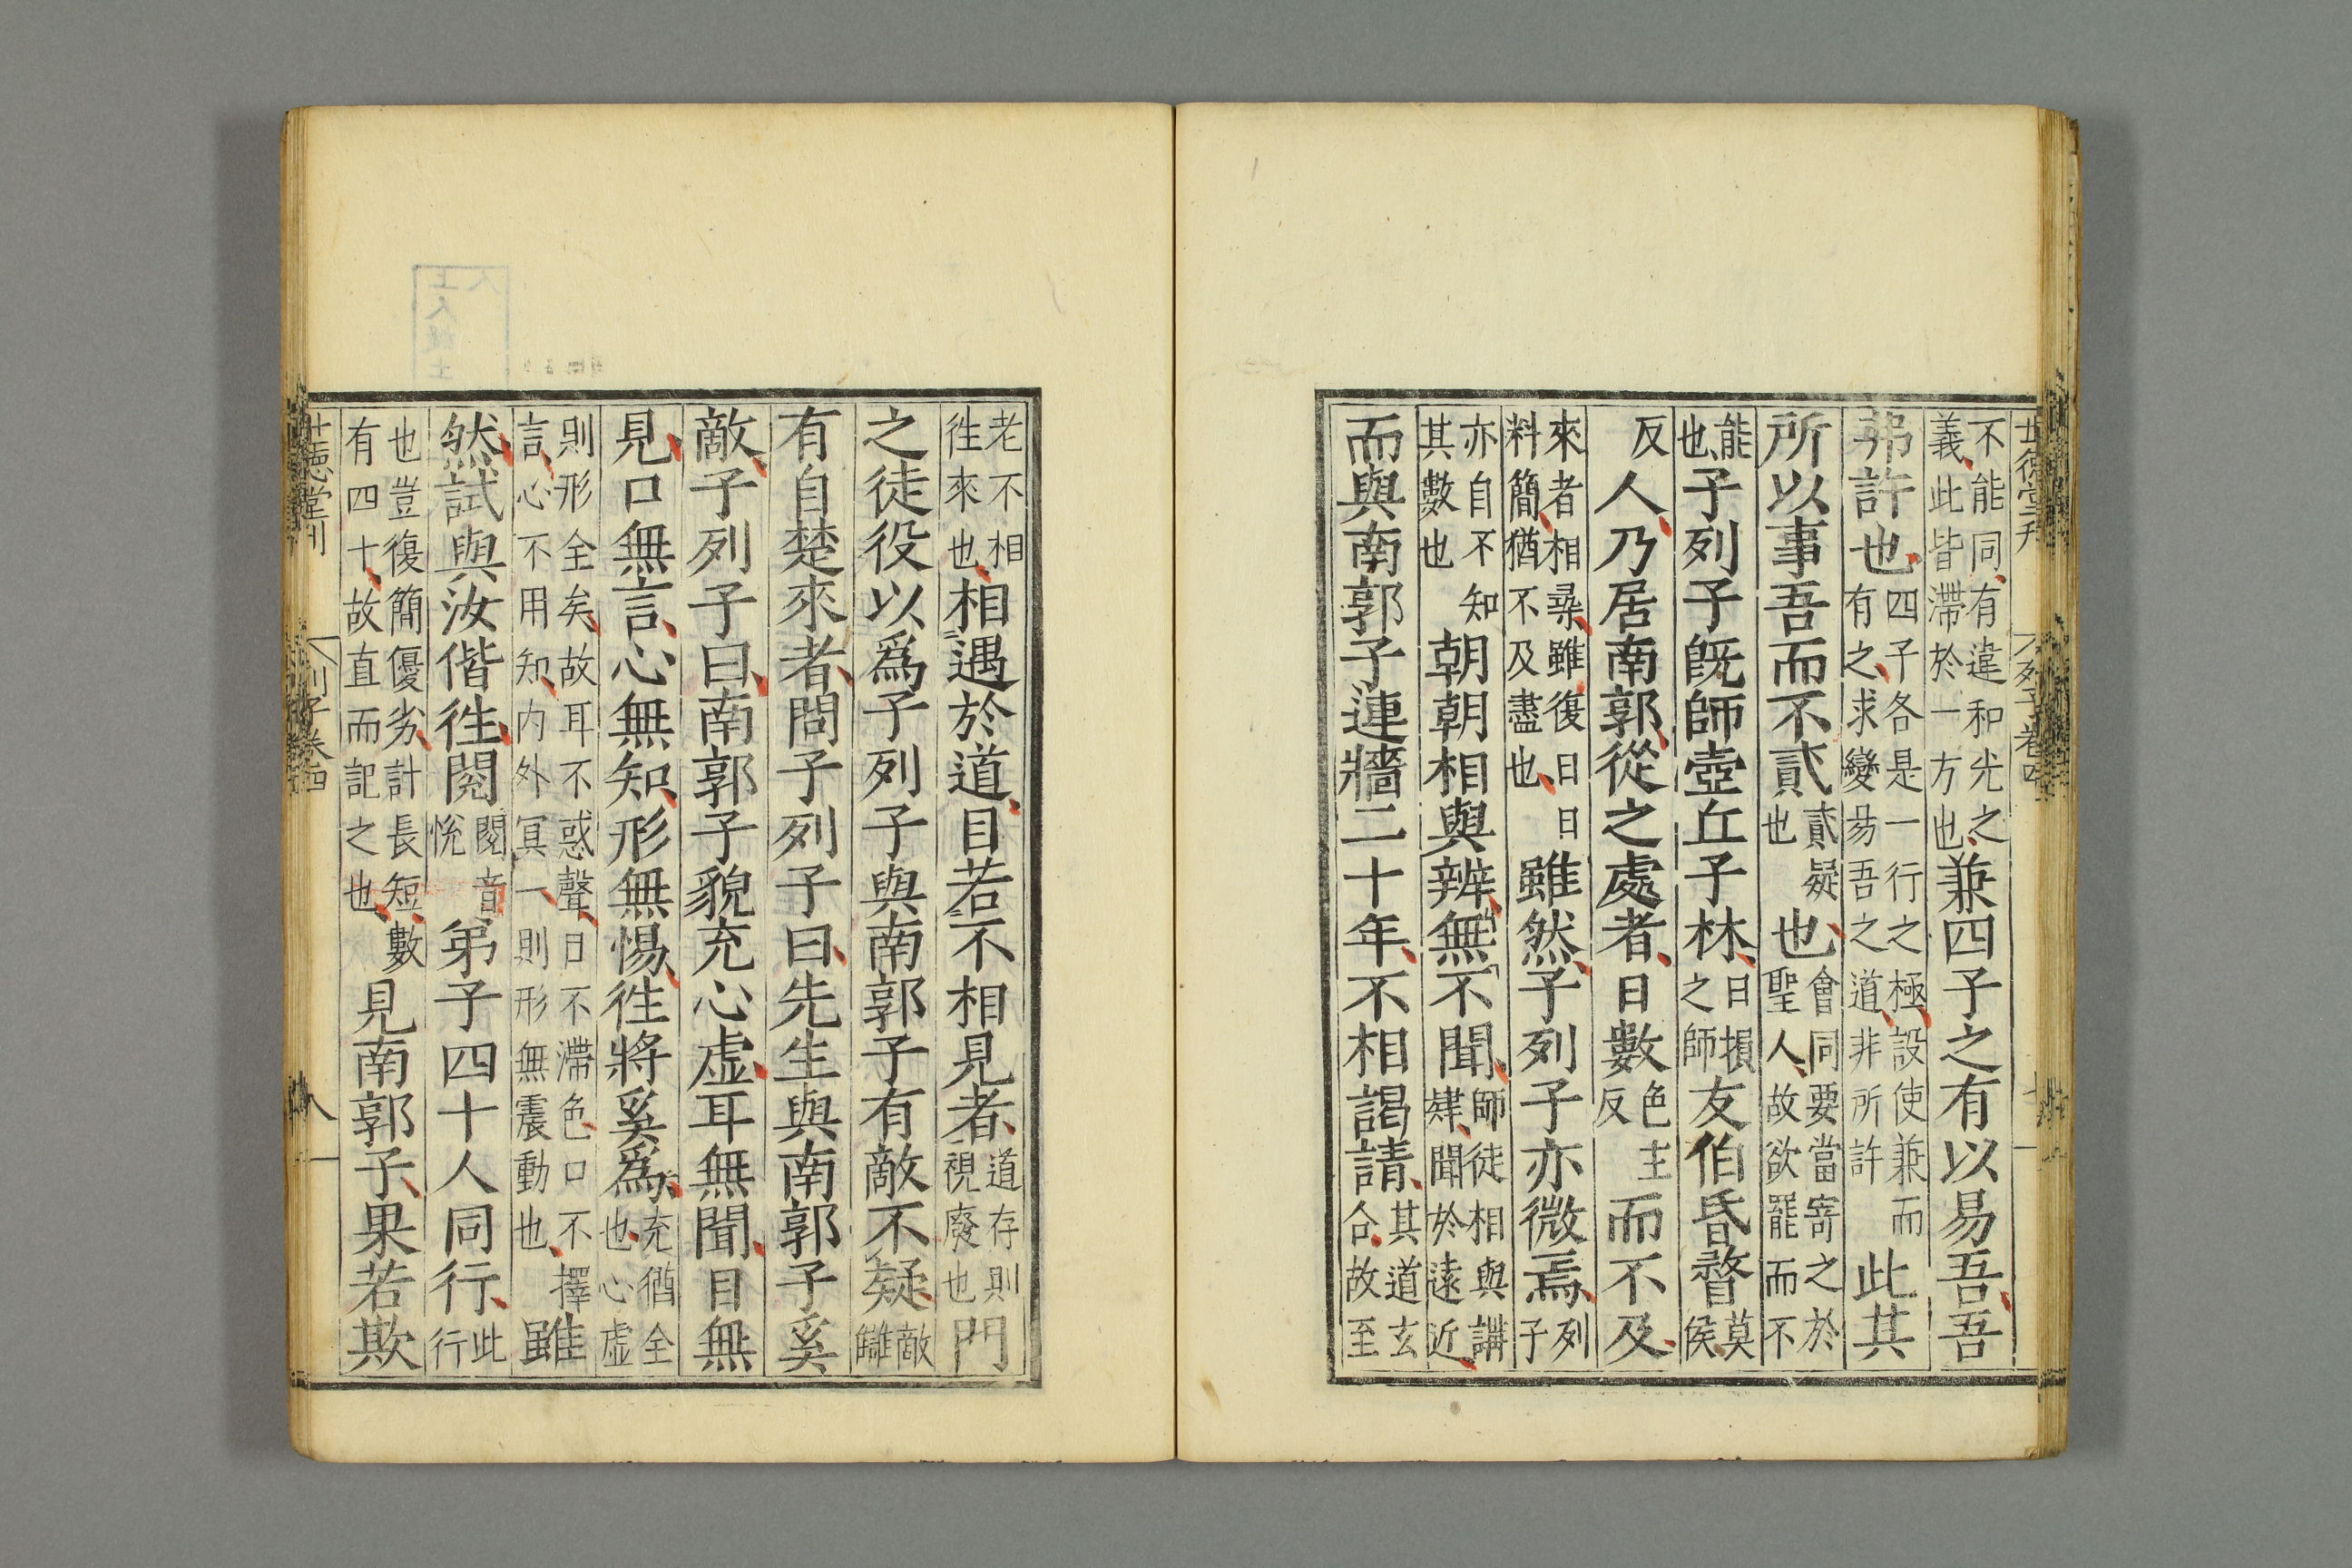 不能同有違和光之義此皆滯於一方也兼四子之有以易吾吾
弗許也四子各是一行之極設使兼而有之求變易吾之道非所許此其
所以事吾而不貳貳疑也也會同要當寄之於聖人故欲罷而不
能也子列子既師壺丘子林日損之師友伯昏瞀莫侯
反人乃居南郭從之處者日數色主反而不及
來者相尋雖復日日料簡猶不及盡也雖然子列子亦微焉列子
亦自不知其數也朝朝相與辨無不聞師徒相與講肄聞於遠近
而與南郭子連牆二十年不相謁請其道玄合故至
老不相徃來也相遇於道目若不相見者道存則視廢也門
之徒役以爲子列子與南郭子有敵不疑敵讎
有自楚來者問子列子曰先生與南郭子奚
敵子列子曰南郭子貌充心虛耳無聞目無
見口無言心無知形無惕徃將奚爲充猶全也心虛
則形全矣故耳不惑聲目不滯色口不擇言心不用知內外冥一則形無震動也雖
然試與汝偕徃閱閱音悅弟子四十人同行此行
也豈復簡優劣計長短數有四十故直而記之也見南郭子果若欺
世德堂刊
列子卷四
八